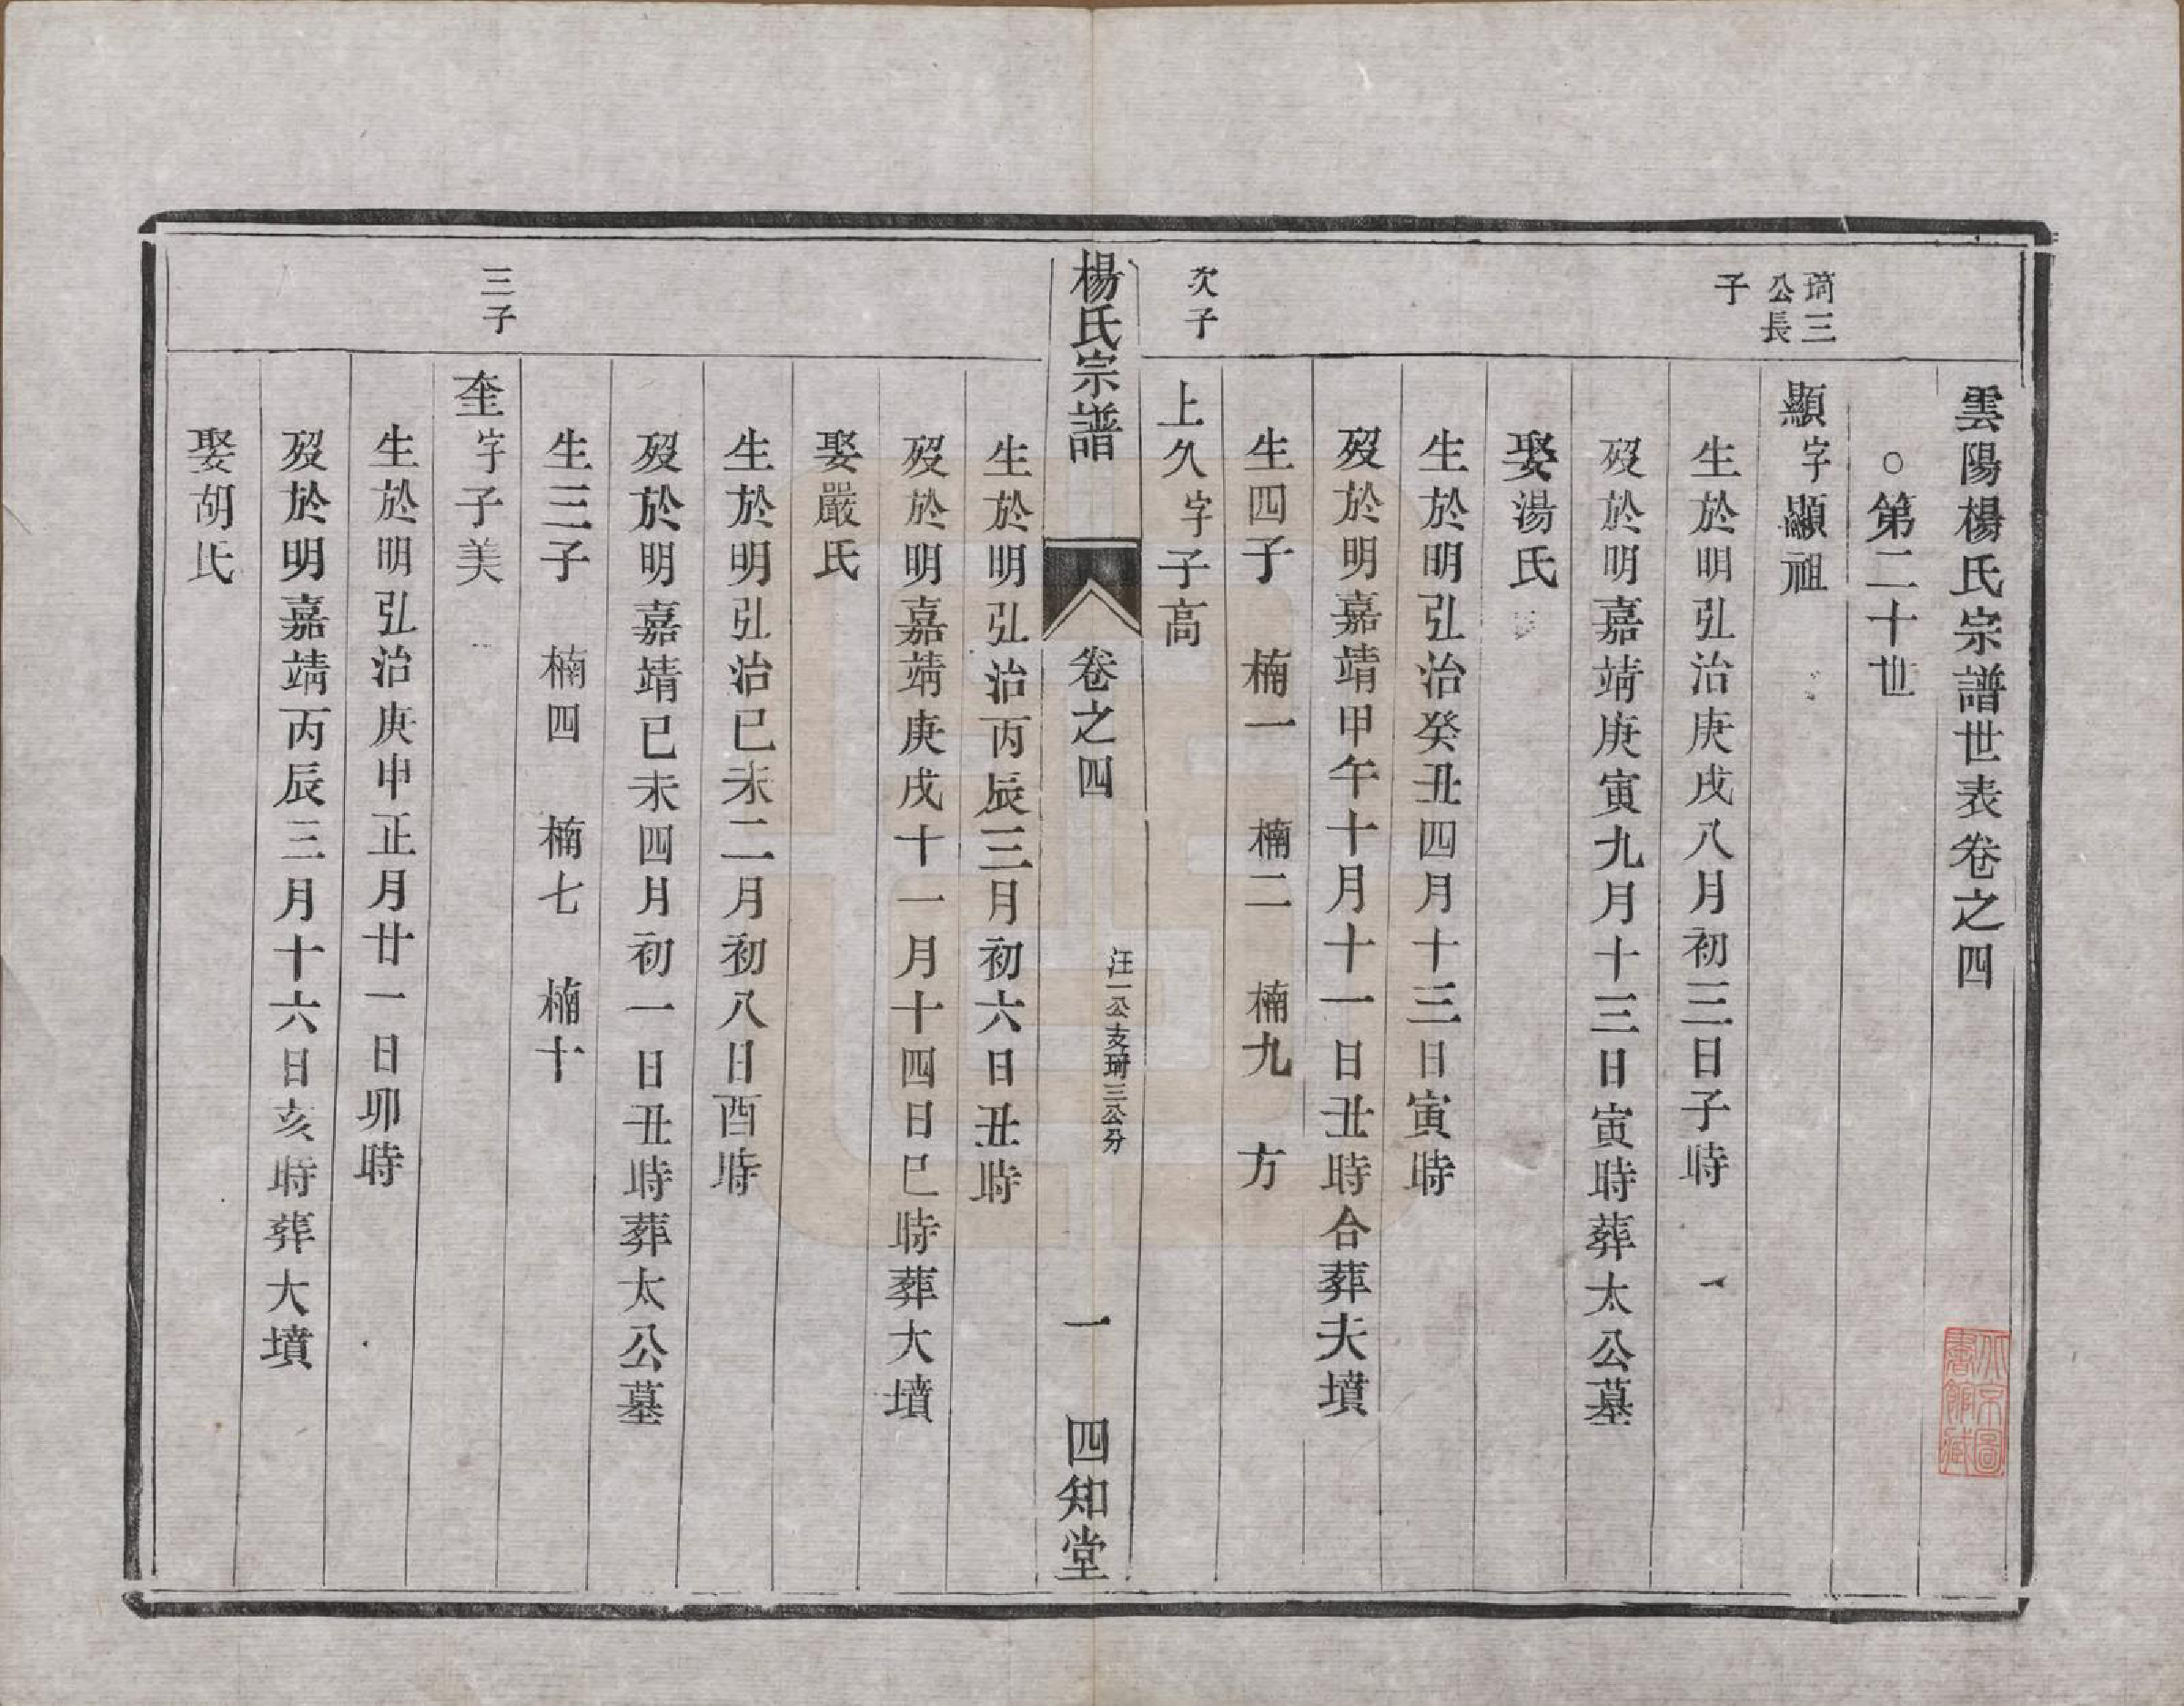 雲陽楊氏宗譜世表卷之四
○第二十世
琦三公長子
顯字顯祖
生於明弘治庚戌八月初三日子時
歿於明嘉靖庚寅九月十三日寅時葬太公墓
娶湯氏
生於明弘治癸丑四月十三日寅時
歿於明嘉靖甲午十月十一日丑時合葬夫墳
生四子　楠一　楠二　楠九　方
次子
上久字子高
楊氏宗譜　卷之四　汪一公支琦三公分　一　四知堂
生於明弘治丙辰三月初六日丑時
歿於明嘉靖庚戌十一月十四日巳時葬大墳
娶嚴氏
生於明弘治已未二月初八日酉時
歿於明嘉靖已未四月初一日丑時葬太公墓
生三子　楠四　楠七　楠十
三子
奎字子美
生於明弘治庚申正月廿一日卯時
歿於明嘉靖丙辰三月十六日亥時葬大墳
娶胡氏